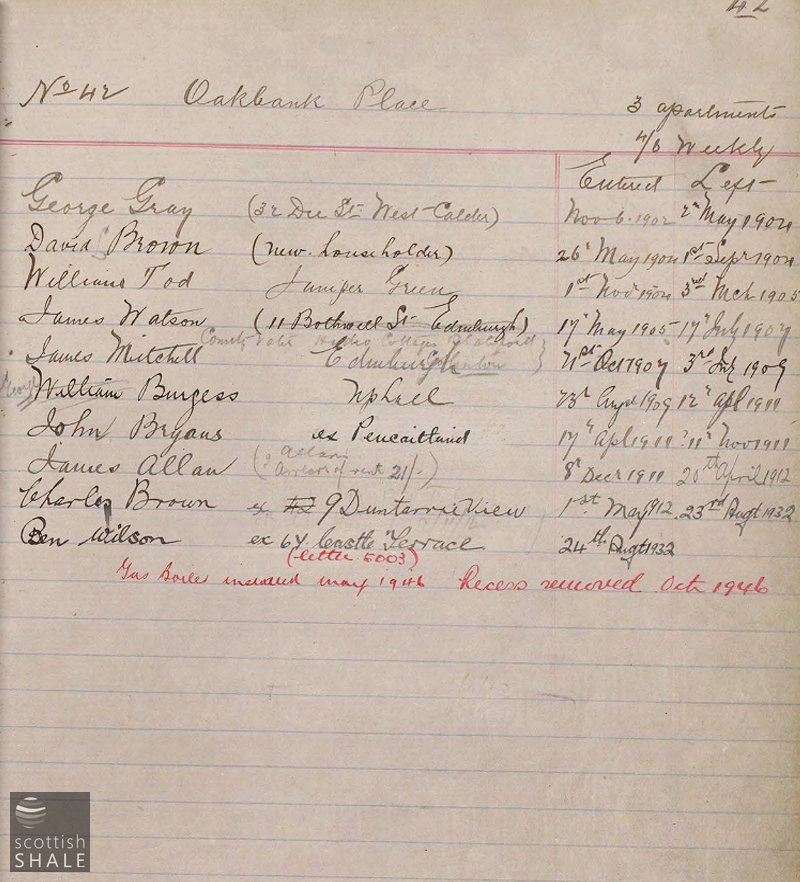 42
No 42 Oakbank Place
3 apartments
4/6 Weekly
Entered Left
George Gray (32 Dee St. West-Calder) Nov 6. 1902 2nd May 1904
David Brown (new householder) 26th May 1904 1st Sept 1904
William Tod Juniper Green 1st Novr 1904 3rd Mch 1905
James Watson (11 Bothwell St Edinburgh) 17th May 1905 17th July 1907
County Cottages
James Mitchell Edinburgh 21st Oct 1907 3rd July 1909
George
William Burgess Uphall 23rd Augt 1909 12th Apl 1911
John Bryans ex Pencaitland 17th Apl 1911 11th Nov 1911
James Allan ( Allan Arrears of rent 21/-) 8th Decr 1911 20th April 1912
Charles Brown ex 9 Duntarvie View 1st May 1912. 23rd Augt 1932
Ben Wilson ex 64 Castle Terrace 24th Augt 1932
(letter 5003)
Gas Boiler installed may 1946 Recess removed Oct 1946
scottish
SHALE